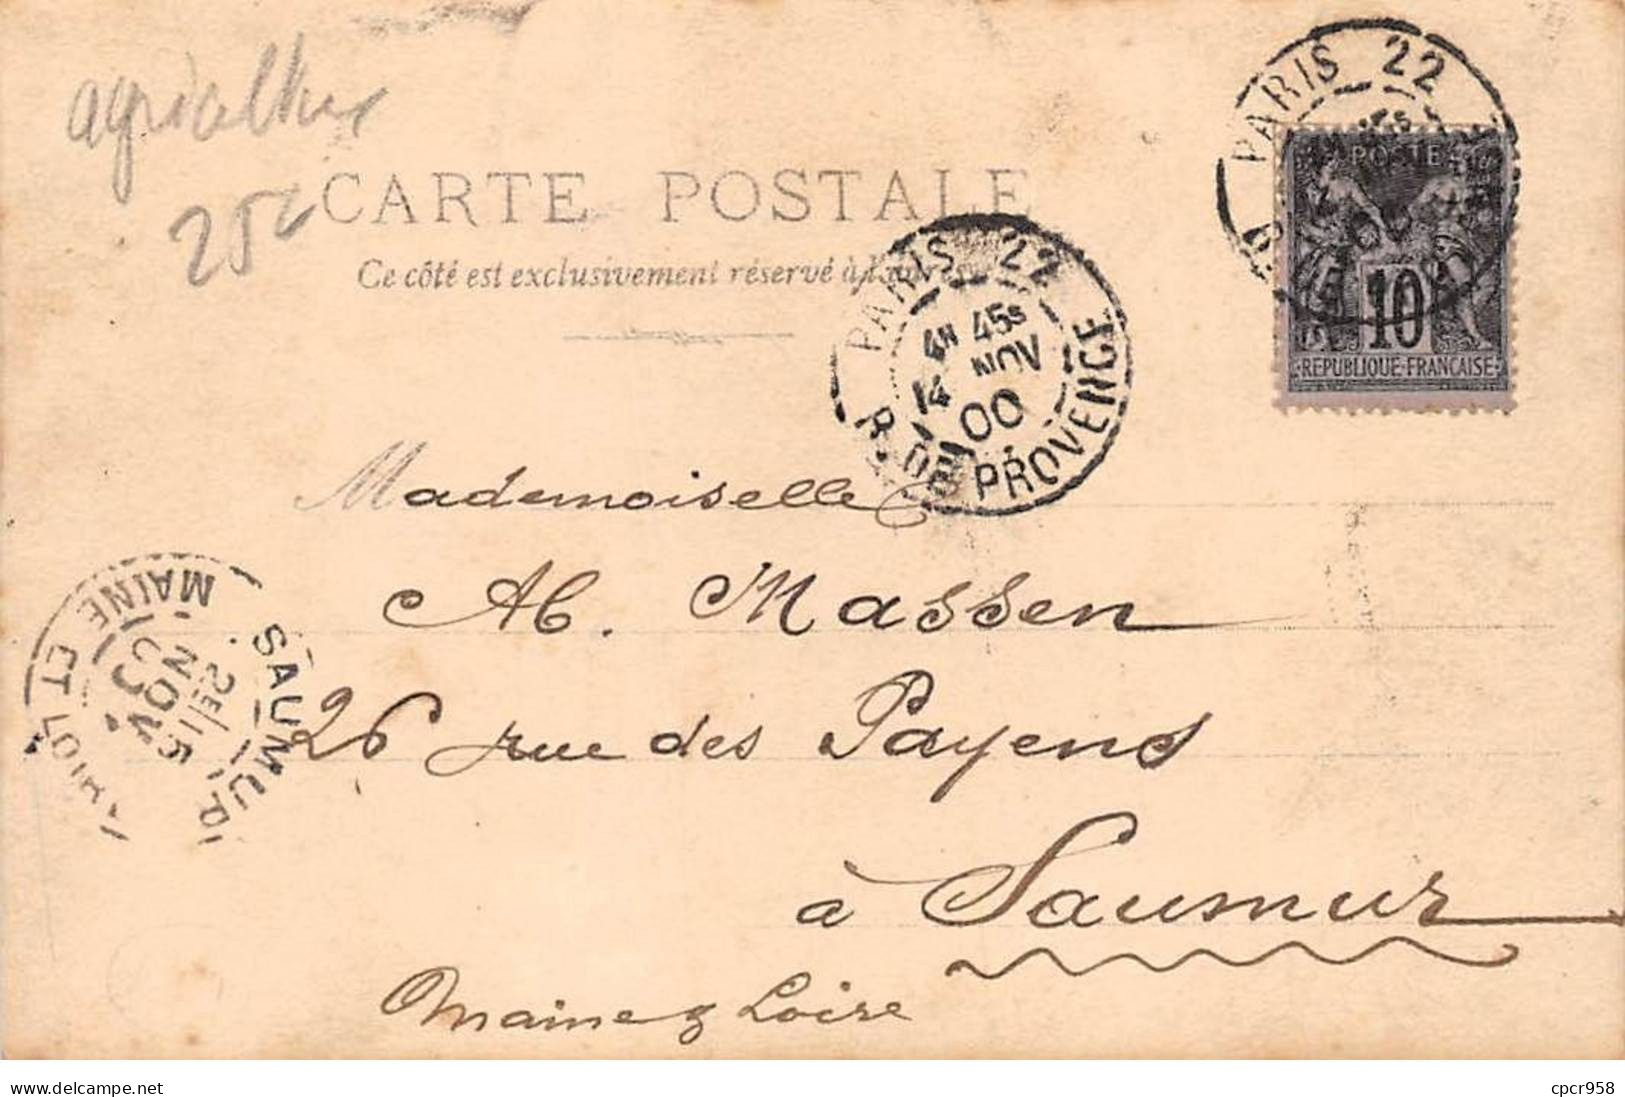 25c
CARTE POSTALE
Ce côté est exclusivement réservé à l'adresse
PARIS 22
POSTE
10
REPUBLIQUE FRANCAISE
PARIS 22
4E 45S
14 NOV
00
R. DE PROVENCE
Mademoiselle
M. Massen
26 rue des Payens
à Saumur
Maine & Loire
SAUMUR
2E/15
NOV
MAINE ET LOIRE
delcampe.net
cpcr958